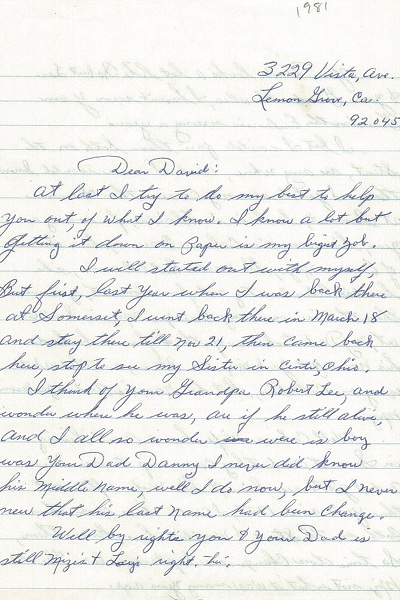 1981
3229 Vista, Ave.
Lemon Grove, Ca.
92045
Dear David:
at last I try to do my best to help
you out, of what I know. I know a lot but
getting it down on Paper is my bigest Job.
I will started out with myself,
But first, last Year when I was back there
at Somerset, I went back there in March 18
and stay there till Nov 21, then came back
here, stop to see my Sister in Cinti, Ohio.
I think of your Grandpa Robert Lee, and
wonder where he was, are if he still alive,
and I all so wonder were is boy
was Your Dad Danny I never did know
his Middle Name, well I do now, but I never
new that his last Name had been Change.
Well by rights you & Your Dad is
still right, hu.